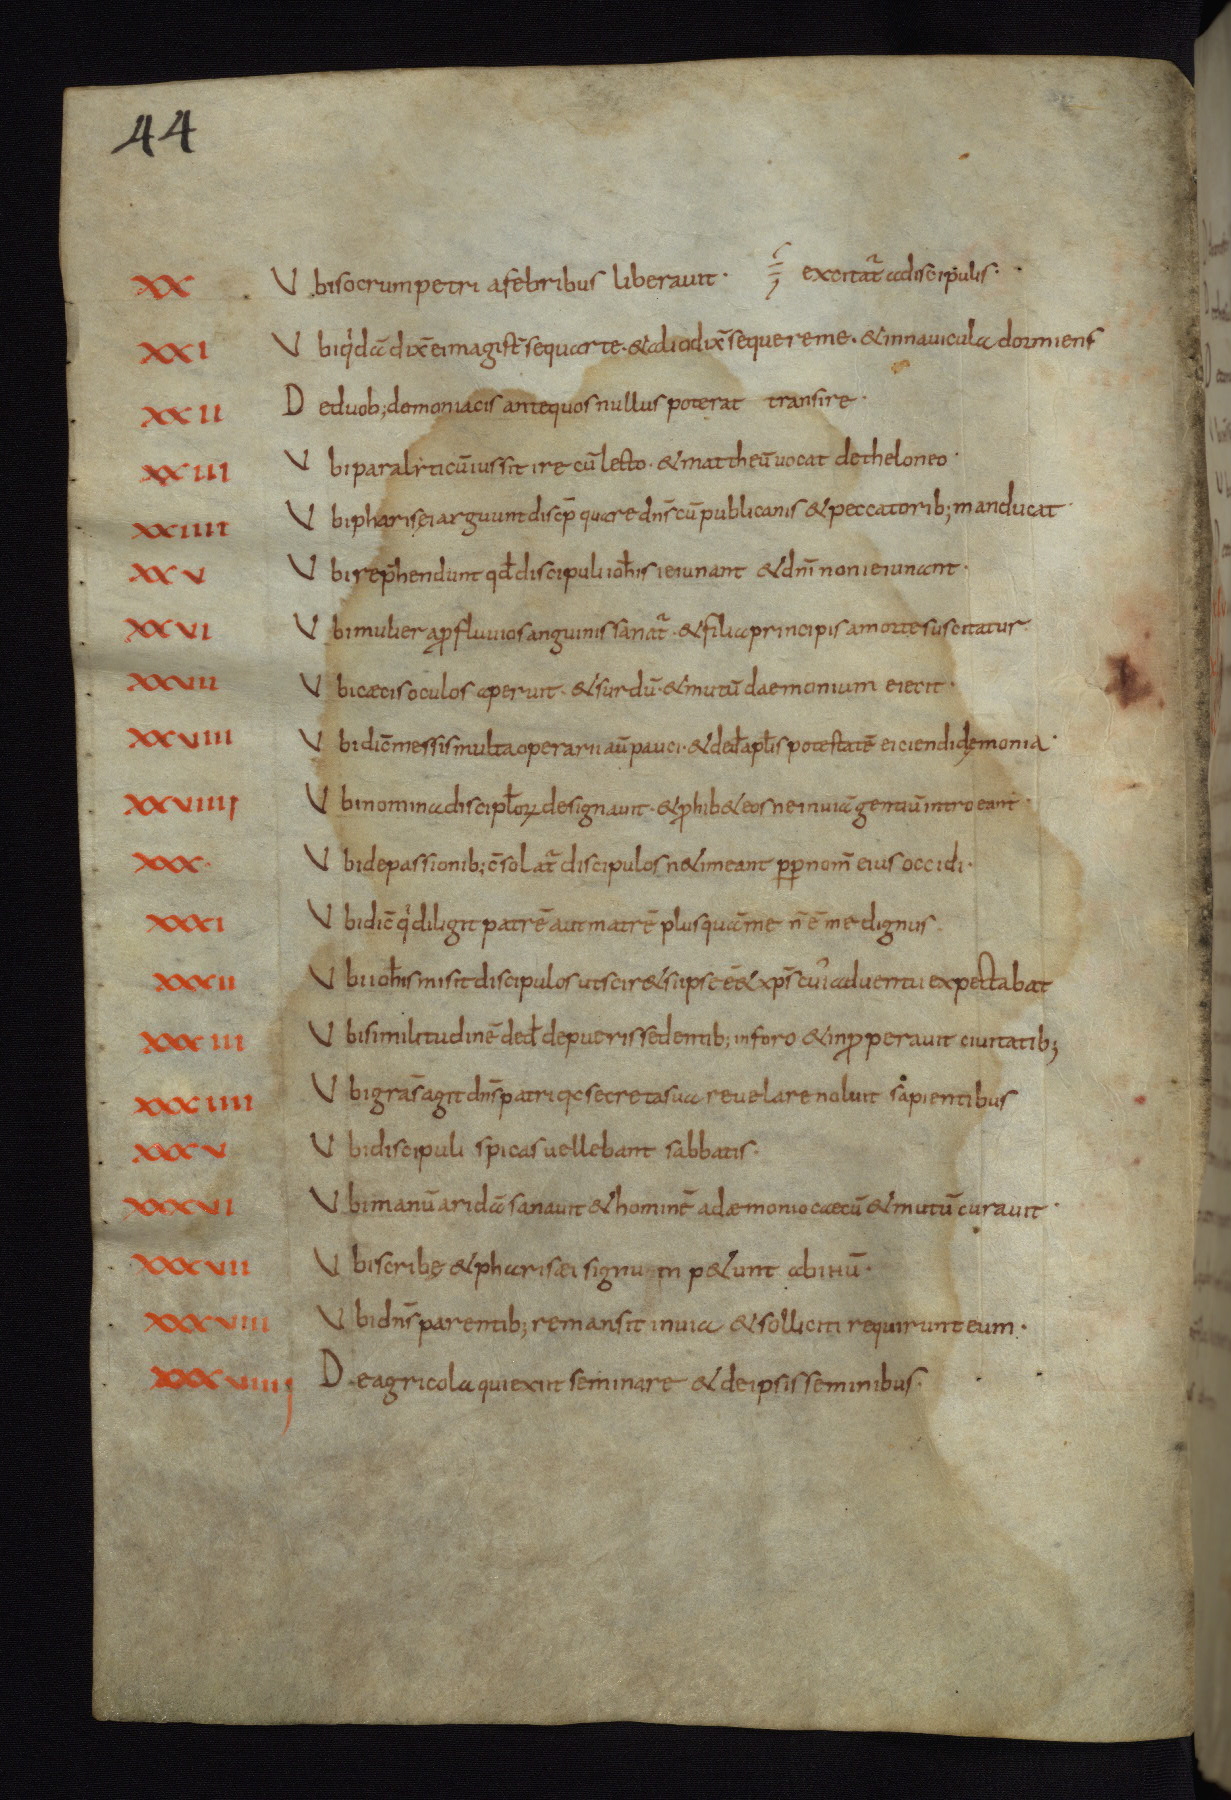 44
XX Ubi socrum petri a febribus liberauit · excitat᷑ a discipulis ·
XXI Ubi q'dā dix̄ ei magist̄ sequar te · & alio dix̄ sequere me · & in nauicula dormiens
XXII De duob; demoniacis ante quos nullus poterat transire ·
XXIII Ubi paralyticū iussit ire cū lecto · & mattheū uocat de theloneo ·
XXIIII Ubi pharisęi arguunt discip̄ quare dn̄s cū publicanis & peccatorib; manducat
XXV Ubi reprehendunt qđ discipuli ioħis ieiunant & dn̄i non ieiunant ·
XXVI Ubi mulier a ꝓfluuio sanguinis sanat᷑ · & filia principis a morte suscitatur
XXVII Ubi caecis oculos aperuit · & surdū · & mutū daemonium eiecit ·
XXVIII Ubi dic̄ messis multa operarii aū pauci · & deđ apłis potestatē eiciendi dęmonia ·
XXVIIII Ubi nomina discipłoꝝ designauit · & ꝓhib& eos ne in uiā gentiū introeant ·
XXX · Ubi de passionib; c̄solat᷑ discipulos n& imeant ꝓp nom̄ eius occidi ·
XXXI Ubi dic̄ q' diligit patrē aut matrē plusquā me n̄ ē me dignus ·
XXXII Ubi ioħis misit discipulos ut scir& si ipse ē& xp̄s cui' aduentū expectabat
XXXIII Ubi similitudinē deđ de pueris sedentib; in foro & inꝓperauit ciuitatib;
XXXIIII Ubi grās agit dn̄s patri q secreta sua reuelare noluit sapientibus
XXXV Ubi discipuli spicas uellebant sabbatis ·
XXXVI Ubi manū aridā sanauit & hominē a dæmonio caecū & mutū curauit ·
XXXVII Ubi scribę & pharisæi signum p&unt ab illū ·
XXXVIII Ubi dn̄s parentib; remansit in uia & solliciti requirunt eum ·
XXXVIIII De agricola qui exiit seminare & de ipsis seminibus ·